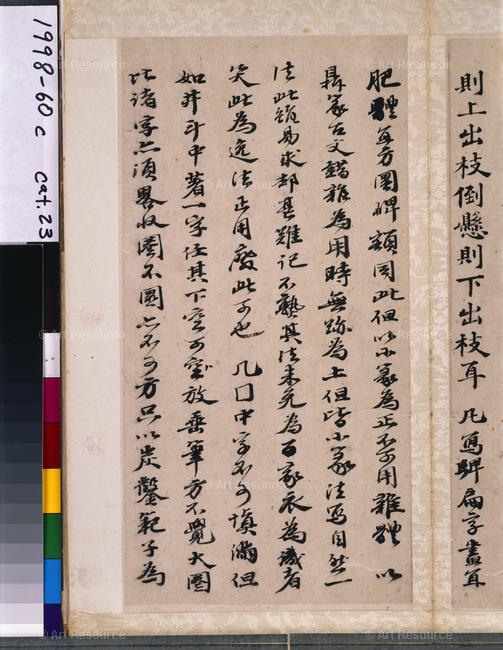 則上出枝倒懸則下出枝耳 凡寫牌扁字畫宜
肥體宜方圓碑額同此但以小篆為正不可用雜體 以
鼎篆古文錯雜為用時無跡為上但皆小篆法寫自然一
法此雖易求却甚難記不熟其法未免為百家衣為識者
笑此為逸法正用廢此可也 凡囗中字不可填滿但
如井斗中著一字任其下空可放垂筆方不覺大圈
比諸字亦須畧收圓不圓亦不可方只以炭墼範子為
1998-60 c cat.23
© Art Resource